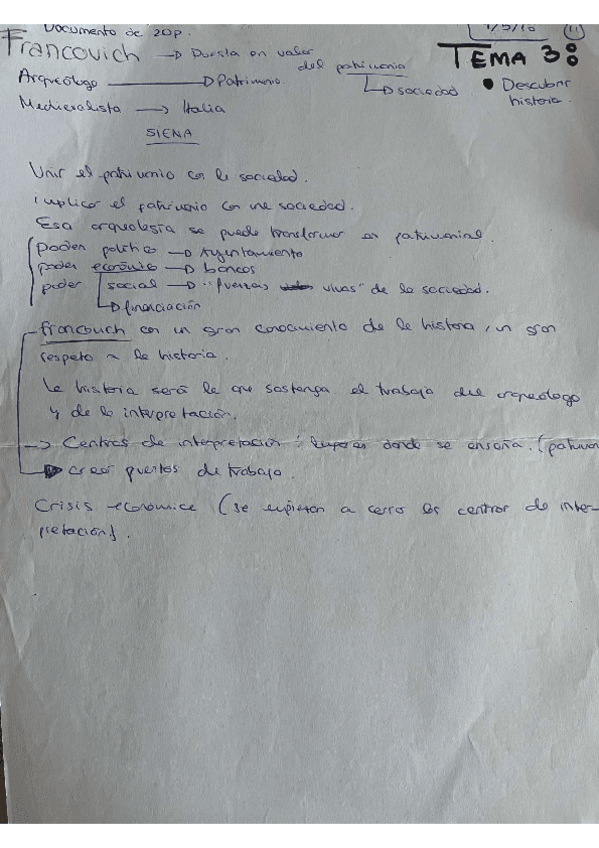 Documento de 20p.
11
Francovich → Puesta en valor del patrimonio
↳ sociedad
TEMA 3:
• Descubrir historia.
Arqueólogo → Patrimonio
Medievalista → Italia
SIENA
Unir el patrimonio con la sociedad.
implicar el patrimonio con una sociedad.
Esa arqueología se puede transformar en patrimonial.
poder político → Ayuntamiento
poder económico → bancos
poder social → "fuerzas vivas" de la sociedad.
↳ financiación
Francovich con un gran conocimiento de la historia, un gran
respeto a la historia.
La historia será la que sostenga el trabajo del arqueólogo
y de la interpretación.
→ Centros de interpretación: lugares donde se enseña. (patrimon
→ crear puestos de trabajo.
Crisis económica (se empiezan a cerrar los centros de inter-
pretación).